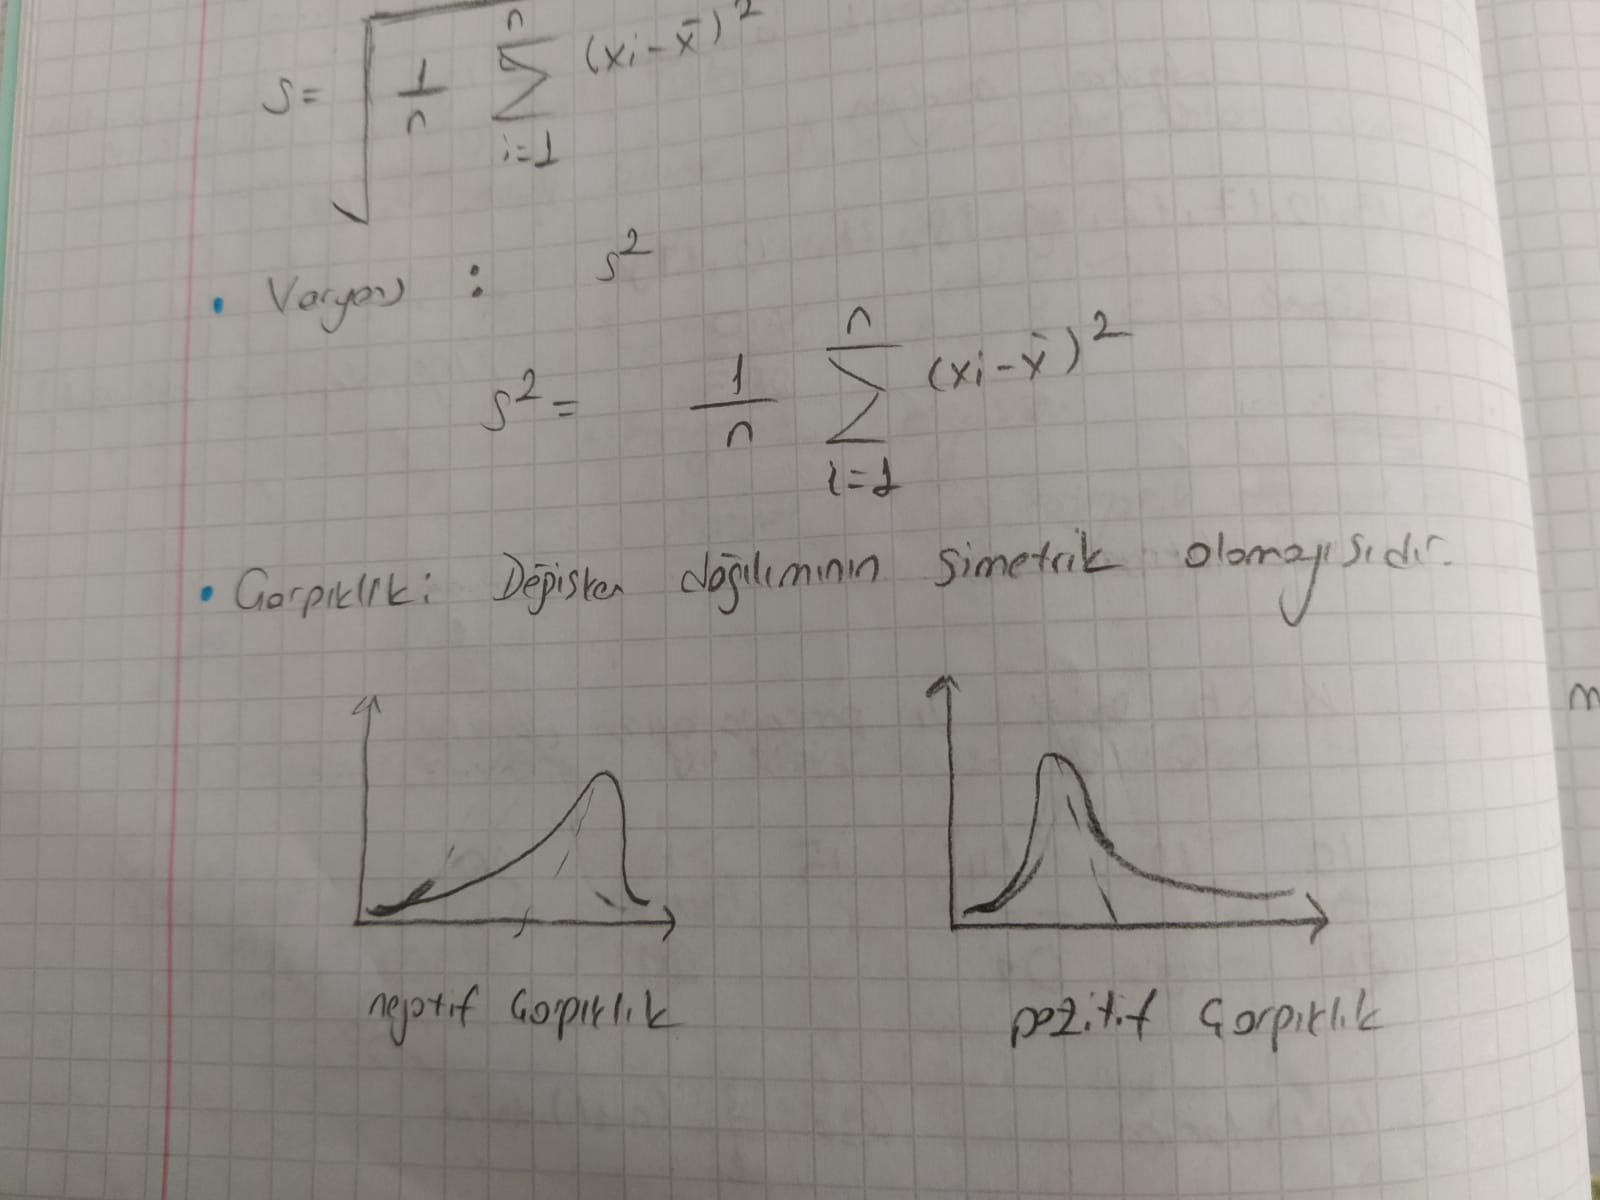 s = √ 1/n n∑i=1 (xi - x̄)²
• Varyans : s²
s² = 1/n n∑i=1 (xi - x̄)²
• Çarpıklık: Değişken dağılımının simetrik olamayışıdır.
negatif Çarpıklık
pozitif Çarpıklık